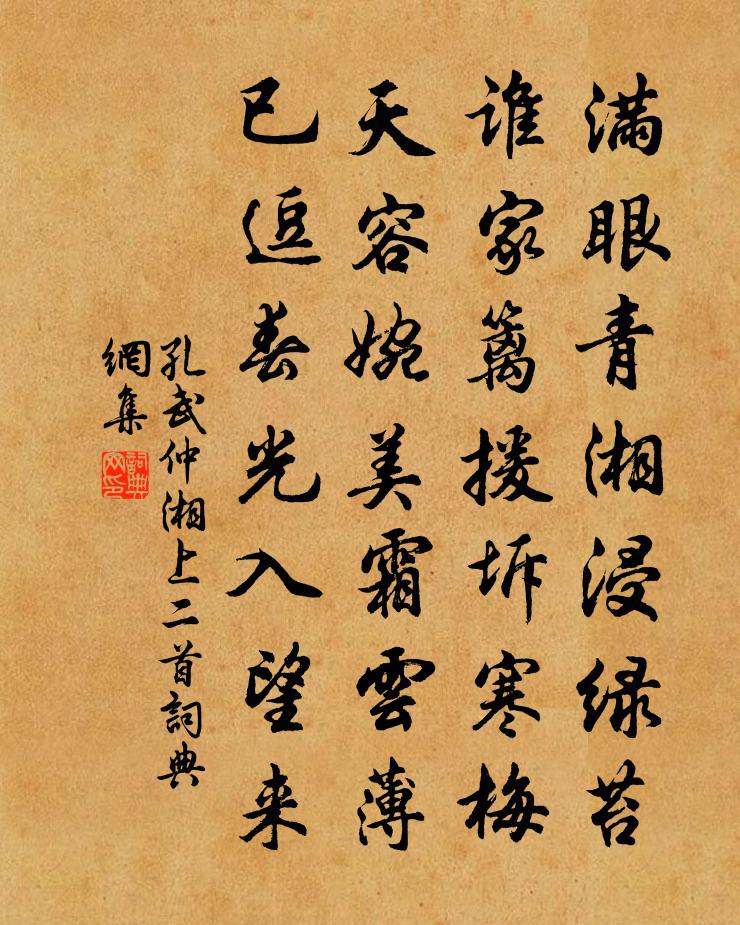 满眼青湘浸绿苔
谁家篱援坼寒梅
天容婉美霜雲薄
已逗春光入望来
孔武仲湘上二首詞典
網集
詞典
网印